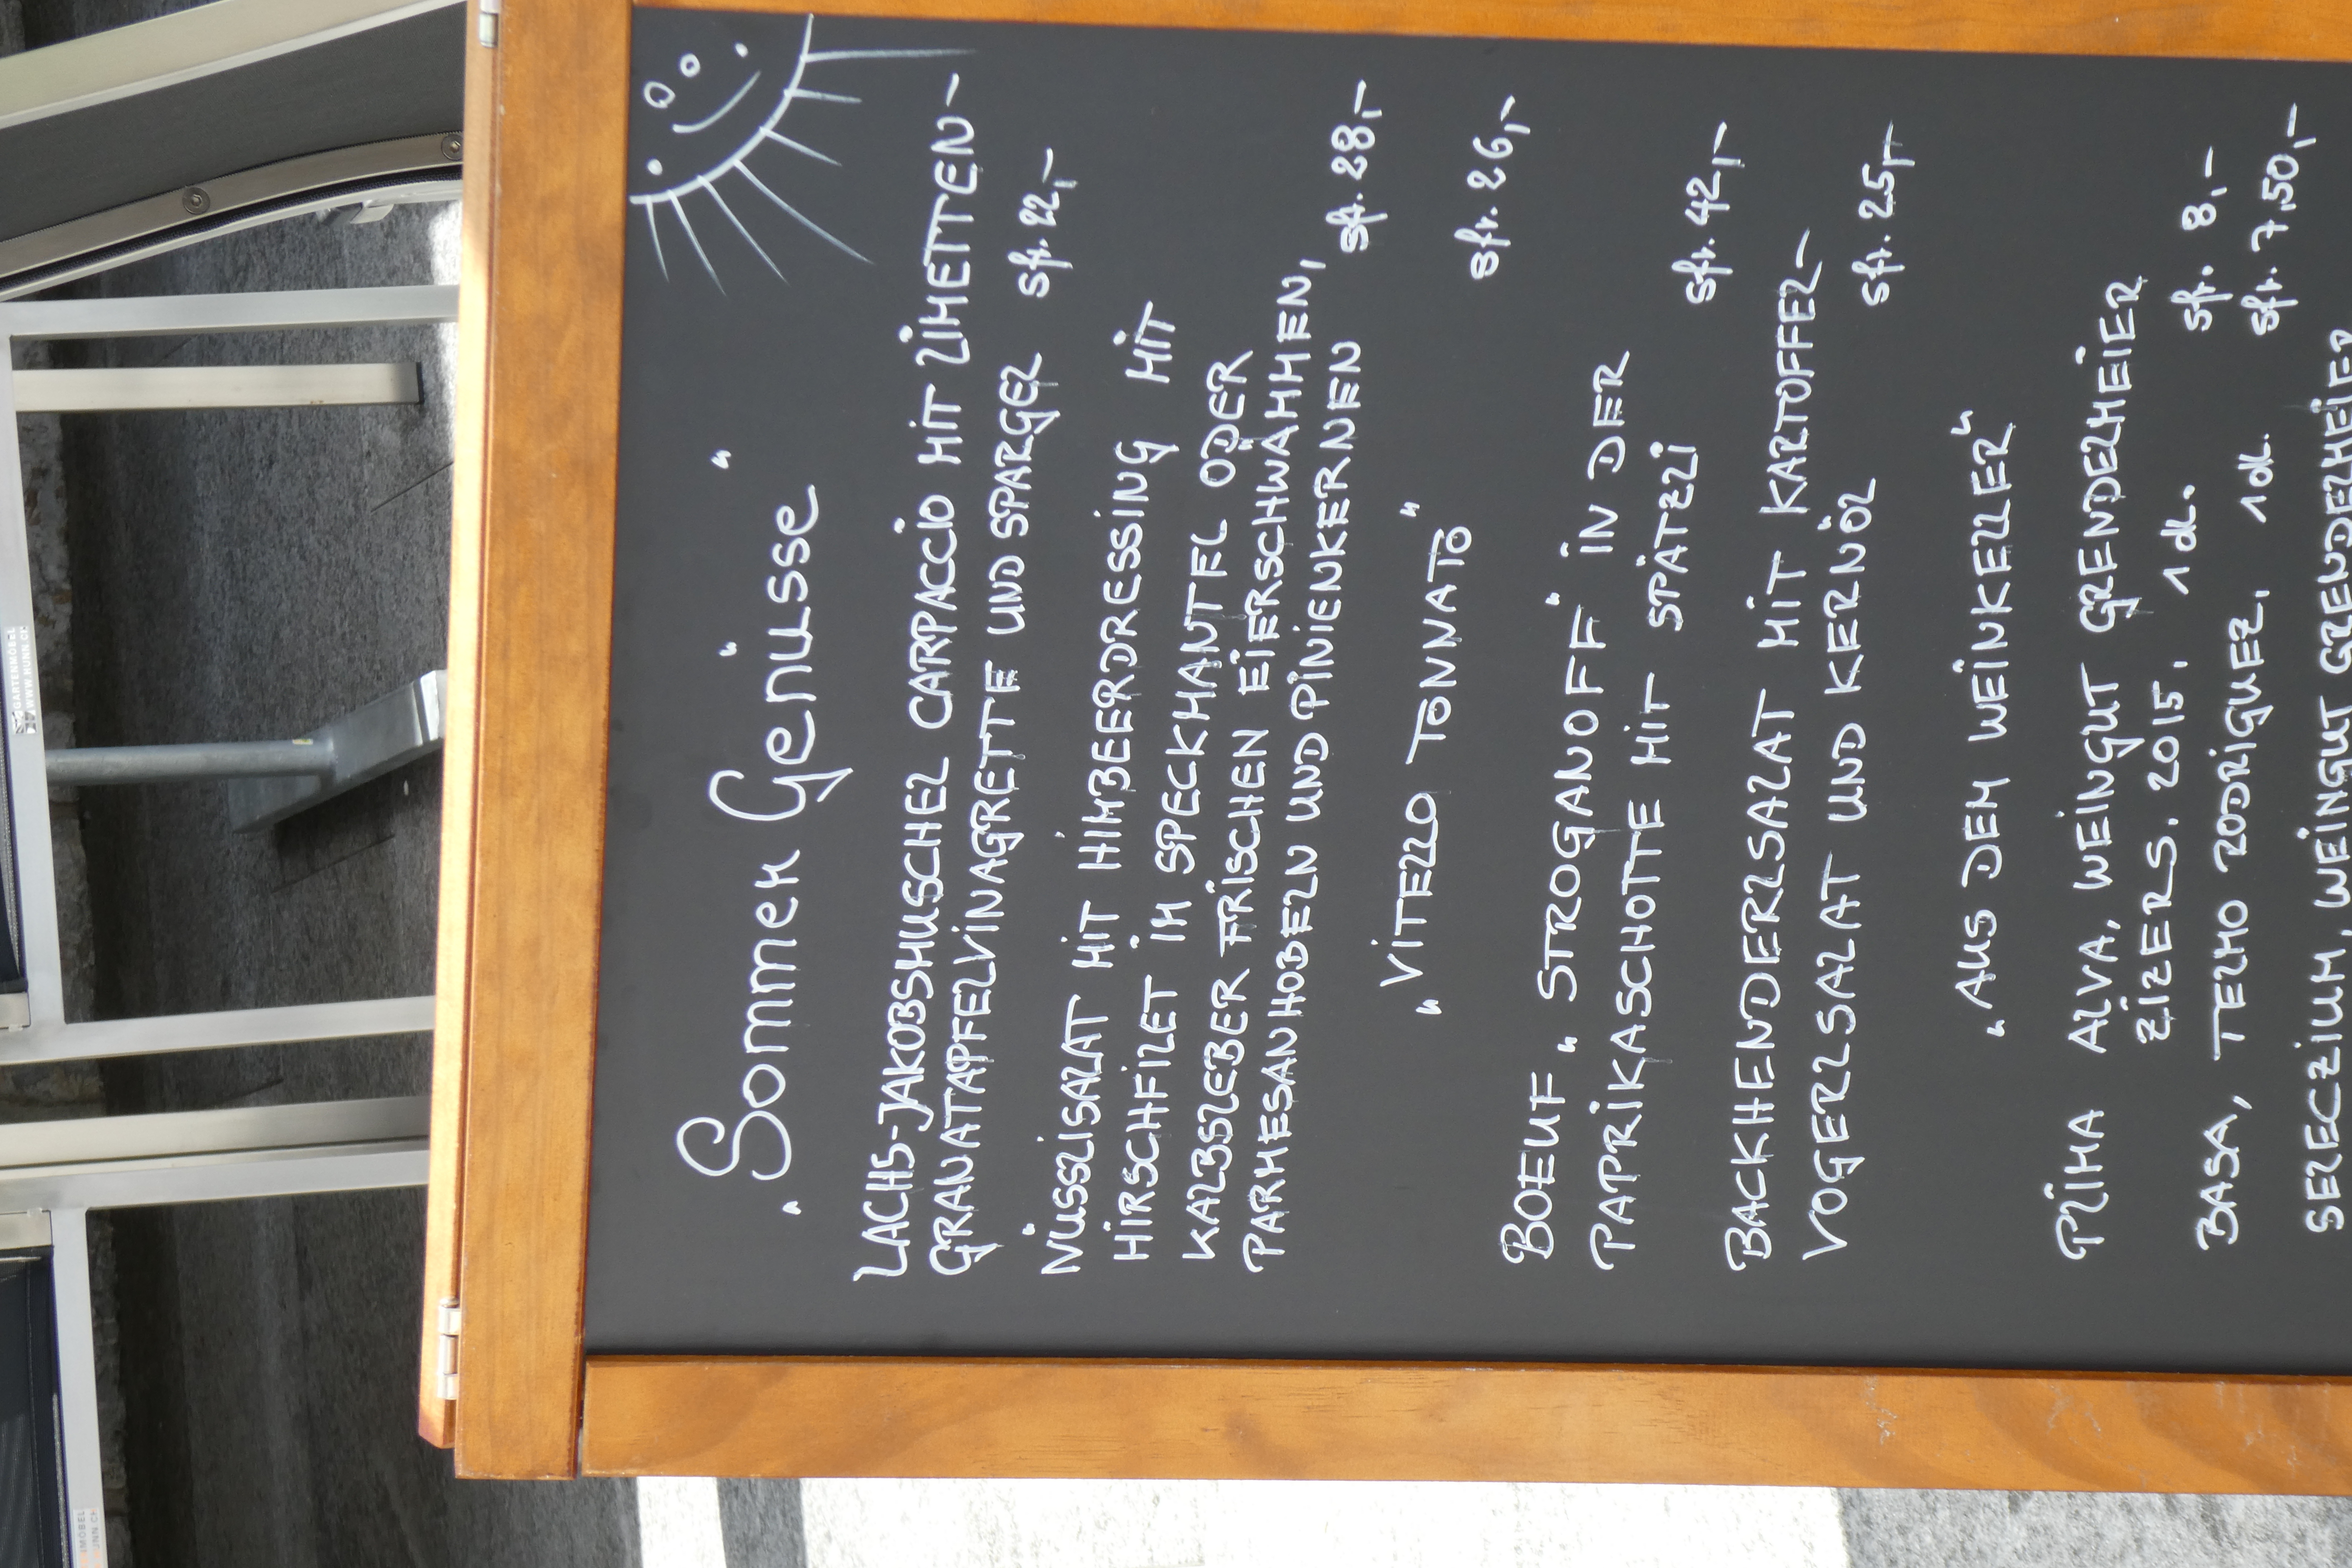 „Sommer Genüsse"
LACHS-JAKOBSMUSCHEL CARPACCIO MIT LIMETTEN-
GRANATAPFELVINAGRETTE UND SPARGEL sfr. 22,-
NÜSSLISALAT MIT HIMBEERDRESSING MIT
HIRSCHFILET IM SPECKMANTEL ODER
KALBSLEBER FRISCHEN EIERSCHWÄMMEN,
PARMESANHOBELN UND PINIENKERNEN sfr. 28,-
„VITELLO TONNATO" sfr. 26,-
BOEUF „STROGANOFF" IN DER
PAPRIKASCHOTTE MIT SPÄTZLI sfr. 42,-
BACKHENDERLSALAT MIT KARTOFFEL-
VOGERLSALAT UND KERNÖL sfr. 25,-
„AUS DEM WEINKELLER"
PRIMA ALVA, WEINGUT GRENDELMEIER
ZIZERS. 2015. 1 dl. sfr. 8,-
BASA, TELMO RODRIGUEZ. 1 dl. sfr. 7,50,-
SELECZIUM, WEINGUT GRENDELMEIER
GARTENMÖBEL
WWW.HUNN.CH